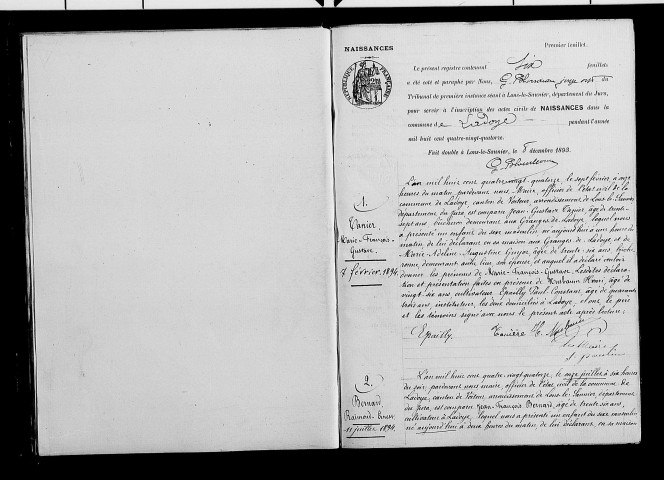 NAISSANCES
Premier feuillet.
RÉPUBLIQUE FRANÇAISE
Le présent registre contenant Six feuillets
a été coté et paraphé par Nous,
Tribunal de première instance séant à Lons-le-Saunier, département du Jura,
pour servir à l'inscription des actes civils de NAISSANCES dans la
commune de Ladoye pendant l'année
mil huit cent quatre-vingt-quatorze.
Fait double à Lons-le-Saunier, le 8 décembre 1893.
1.
Tanier,
Marie-François-
Gustave
7 février 1894.
L'an mil huit cent quatre-vingt-quatorze, le sept février, à onze
heures du matin, pardevant nous Maire, officier de l'état civil de la
commune de Ladoye, canton de Voiteur, arrondissement de Lons-le-Saunier,
département du Jura, est comparu Jean Gustave Tanier, âgé de trente
sept ans, bucheron demeurant aux Granges de Ladoye, lequel nous
a présenté un enfant du sexe masculin, né aujourd'hui à une heure du
matin, de lui déclarant en sa maison aux Granges de Ladoye, et de
Marie Adeline Augustine Guyot, âgée de trente six ans,
demeurant avec lui, son épouse, et auquel il a déclaré vouloir
donner les prénoms de Marie-François-Gustave. Lesdites déclara-
tion et présentation faites en présence de Henri, âgé de
vingt six ans, cultivateur, Epailly Paul Constant, âgé de quarante
trois ans, instituteur, les deux domiciliés à Ladoye, et ont, le père
et les témoins signé avec nous le présent acte après lecture.
Epailly.
Le Maire
2.
Bernard
11 juillet 1894.
L'an mil huit cent quatre-vingt-quatorze, le onze juillet à six heures
du soir, pardevant nous maire, officier de l'état civil de la commune de
Ladoye, canton de Voiteur, arrondissement de Lons-le-Saunier, département
du Jura, est comparu Jean-François Bernard, âgé de trente six ans,
cultivateur à Ladoye, lequel nous a présenté un enfant du sexe masculin
né aujourd'hui à deux heures du matin, de lui déclarant, en sa maison